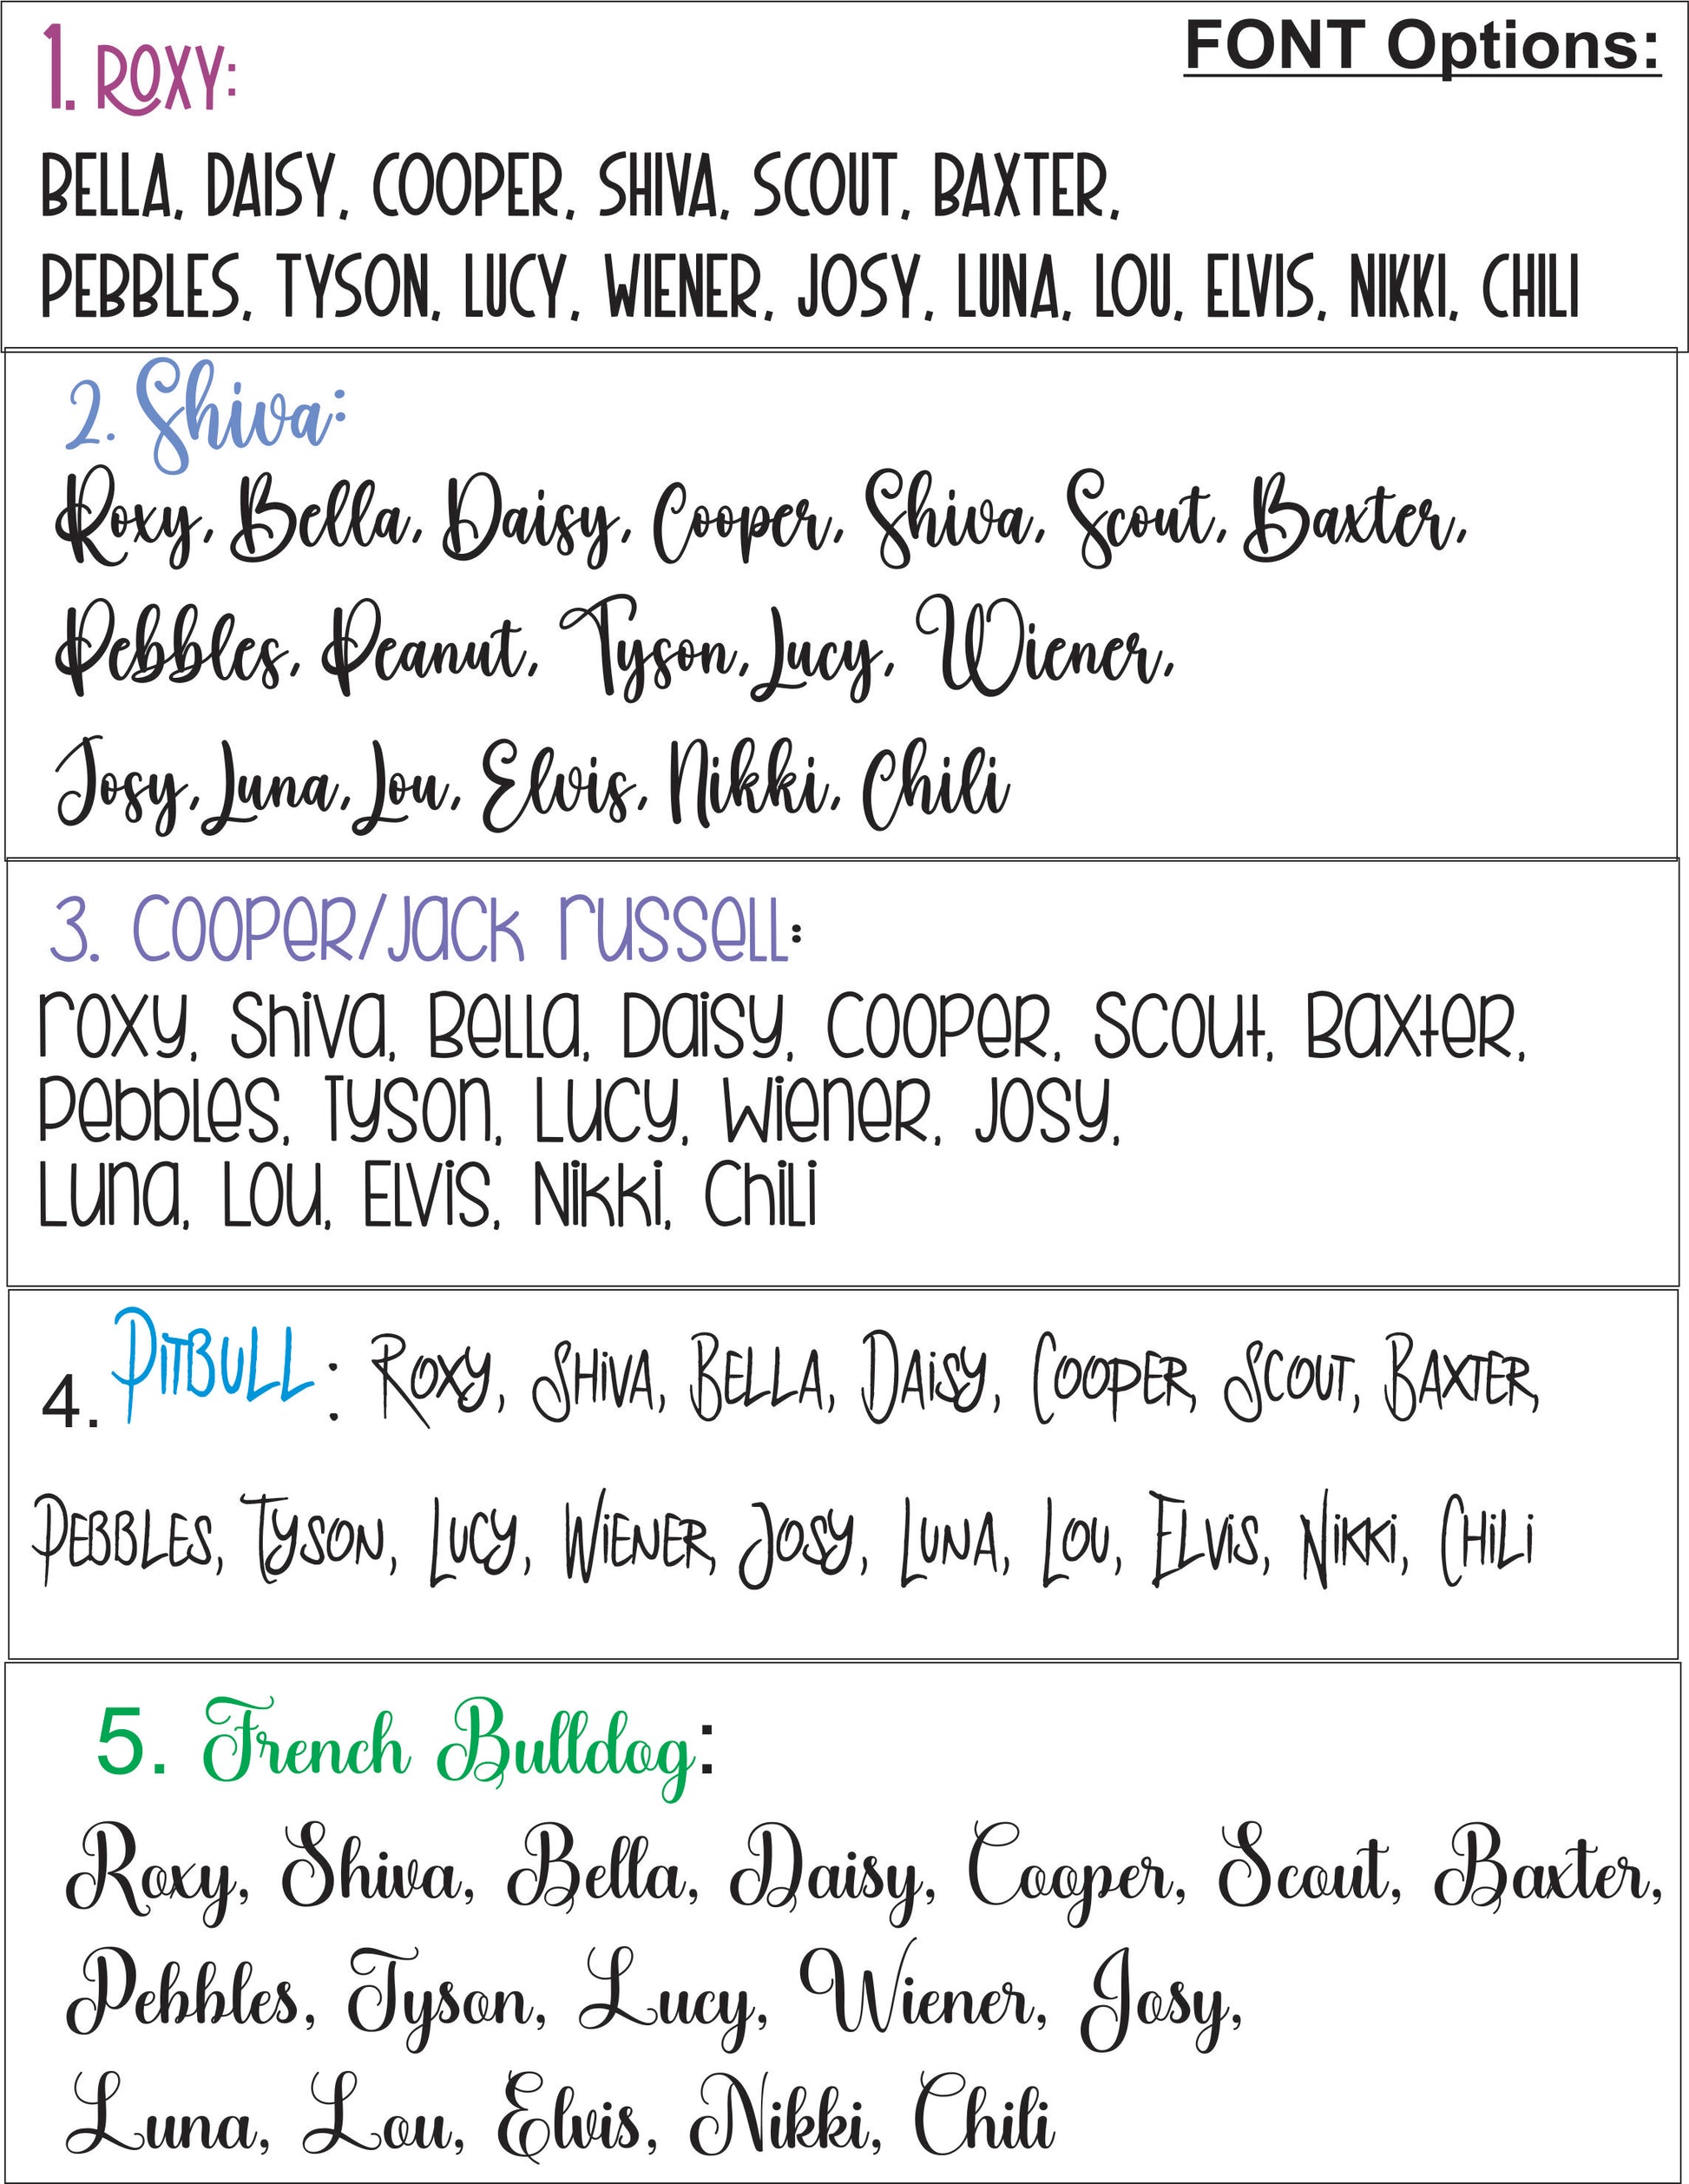 FONT Options:
1. ROXY:
BELLA, DAISY, COOPER, SHIVA, SCOUT, BAXTER,
PEBBLES, TYSON, LUCY, WIENER, JOSY, LUNA, LOU, ELVIS, NIKKI, CHILI
2. Shiva:
Roxy, Bella, Daisy, Cooper, Shiva, Scout, Baxter,
Pebbles, Peanut, Tyson, Lucy, Wiener,
Josy, Luna, Lou, Elvis, Nikki, Chili
3. Cooper/Jack Russell:
Roxy, Shiva, Bella, Daisy, Cooper, Scout, Baxter,
Pebbles, Tyson, Lucy, Wiener, Josy,
Luna, Lou, Elvis, Nikki, Chili
4. PITBULL: ROXY, SHiVA, BELLA, DAiSY, COOPER, SCOUT, BAXTER,
PEBBLES, TYSON, LUCY, WiENER, JOSY, LUNA, LOU, ELViS, NiKKi, CHiLi
5. French Bulldog:
Roxy, Shiva, Bella, Daisy, Cooper, Scout, Baxter,
Pebbles, Tyson, Lucy, Wiener, Josy,
Luna, Lou, Elvis, Nikki, Chili